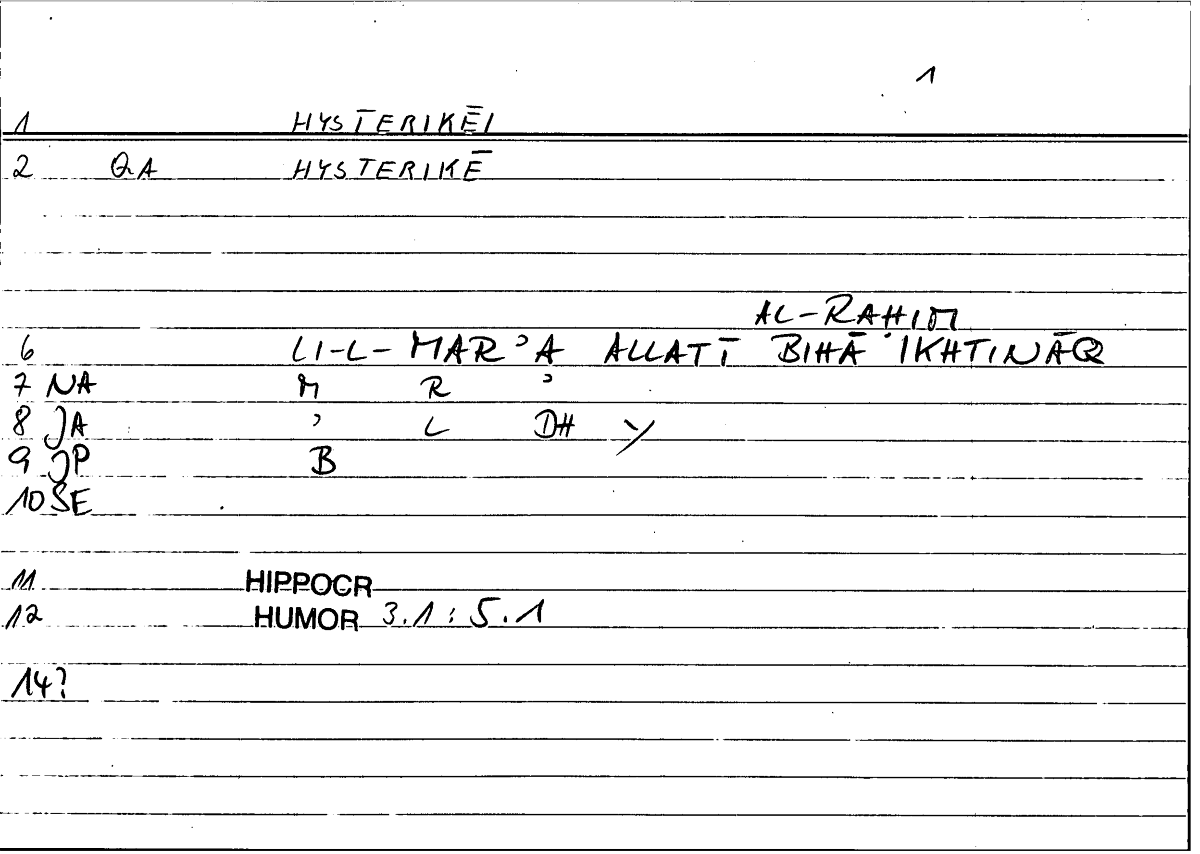 1
1 HYSTERIKĒI
2 QA HYSTERIKĒ
AL-RAḤIM
6 LI-L-MARʾA ALLATĪ BIHĀ IKHTINĀQ
7 NA M R ʾ
8 JA ʾ L DH Y
9 JP B
10 SE
11 HIPPOCR
12 HUMOR 3.1 : 5.1
14?